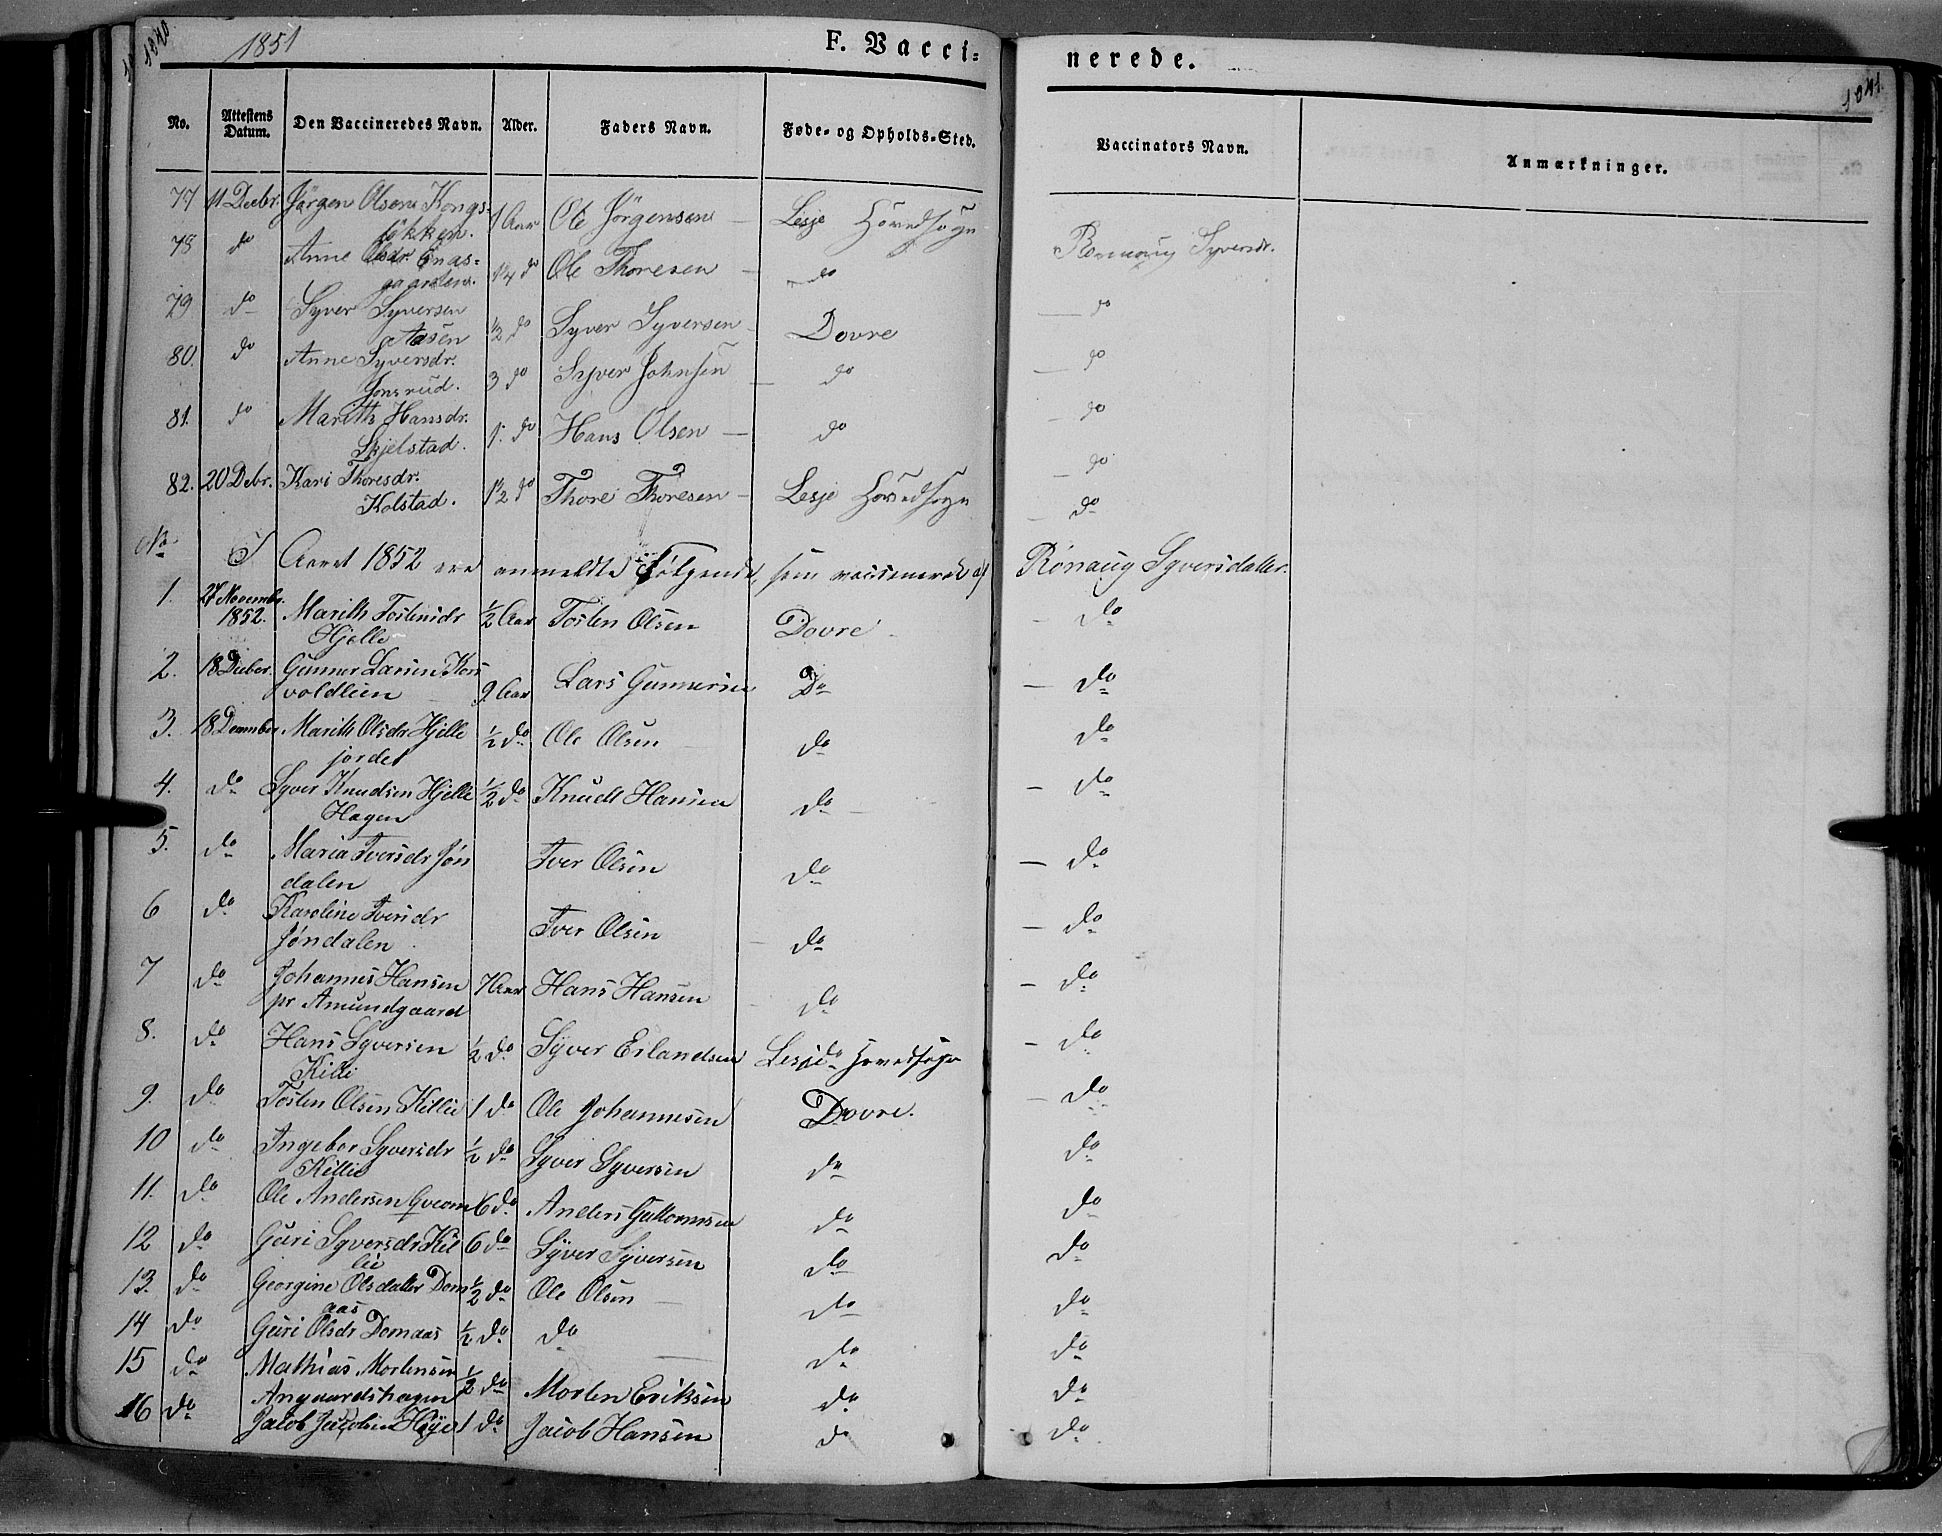 1040
1851
F. Vacci-
nerede.
1041.
No. Attestens Datum. Den Vaccineredes Navn. Alder. Faders Navn. Føde- og Opholds-Sted. Vaccinators Navn. Anmærkninger.
77 11 Decbr. Jörgen Olsen Kongs- 1 Aar Ole Jörgensen — Lesje Hovedsogn Rønnaug Syversdr.
løkken.
78 do Anne Olsdr. Enas- 1/4 do Ole Thoresen — do — do
gaarden.
79 do Syver Syversen 1/2 do Syver Syversen — Dovre — do
Aasen
80. do Anne Syversdr. 3 do Syver Johnsen — do — do
Jonsrud.
81. do Marith Hansdr. 1. do Hans Olsen — do — do
Skjelstad.
82. 20 Decbr. Kari Thoresdr. 1/2 do Thore Thoresen — Lesje Hovedsogn — do
Kolstad.
No I Aaret 1852 ere anmeldte Følgende, som vaccinerede af Rønaug Syversdatter.
1. 27 Novembr. 1852. Marith Tostensdr 1/2 Aar Tosten Olsen Dovre — do
Hjelle
2. 18 Decber. Gunner Larsen Kors 9 Aar Lars Gunnersen Do — do
voldlien
3. 18 December Marith Olsdr Hjelle 1/2 do Ole Olsen do do
jordet
4. do Syver Knudsen Hjelle 1/2 do Knudt Hansen do — do
Hagen
5. do Maria Iversdr Jön Iver Olsen do — do
dalen
6 do Karoline Iversdr Iver Olsen — do — do
Jøndalen
7 do Johannes Hansen 7 Aar Hans Hansen — do — do
pr Amundgaard
8. do Hans Syversen 1/2 do Syver Erlandsen Lesje Hovedsogn — do
Killi
9. do Tosten Olsen Killie 1 do Ole Johannesen Dovre. — do
10 do Ingebor Syversdr 1/2 do Syver Syversen do do
Killie
11. do Ole Andersen 6 do Anders Guttormsen do do
12 do Guri Syversdr Kil 6 do Syver Syversen do do
lie
13. do Georgine Olsdatter Dom 1/2 do Ole Olsen — do do
aas
14 do Guri Olsdr Domaas 1/2 do do do do
15 do Mathias Mortensen 1/2 do Morten Eriksen do do
Angaardshagen
16 do Jacob Jacobsen Höye 1 do Jacob Hansen do do